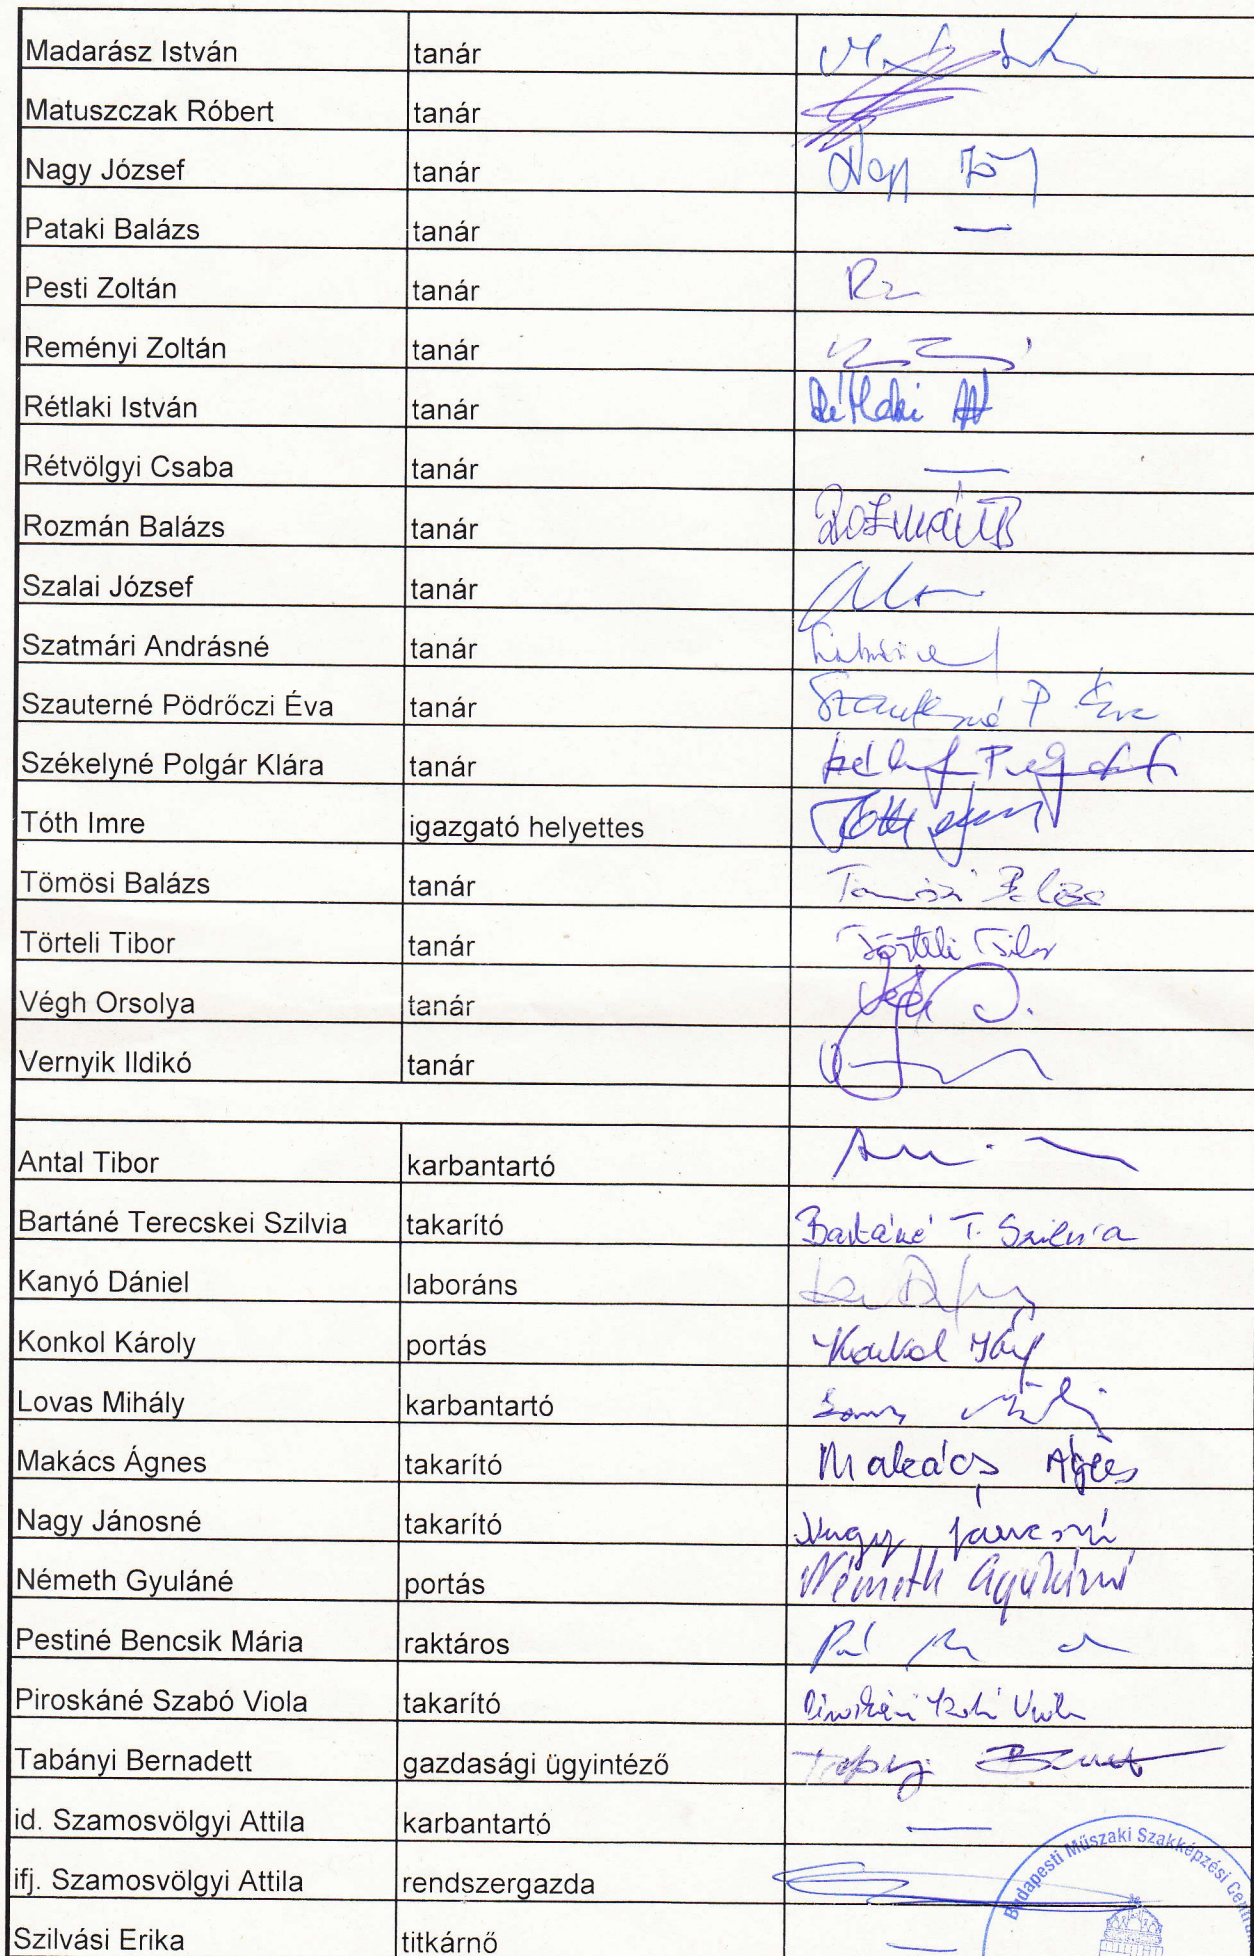 Madarász István tanár
Matuszczak Róbert tanár
Nagy József tanár Nagy
Pataki Balázs tanár —
Pesti Zoltán tanár
Reményi Zoltán tanár
Rétlaki István tanár Rétlaki
Rétvölgyi Csaba tanár —
Rozmán Balázs tanár Rozmán B
Szalai József tanár
Szatmári Andrásné tanár
Szauterné Pödrőczi Éva tanár Szauterné P Éva
Székelyné Polgár Klára tanár
Tóth Imre igazgató helyettes Tóth
Tömösi Balázs tanár Tömösi Balázs
Törteli Tibor tanár Törteli Tibor
Végh Orsolya tanár Végh O.
Vernyik Ildikó tanár
Antal Tibor karbantartó
Bartáné Terecskei Szilvia takarító Bartáné T. Szilvia
Kanyó Dániel laboráns
Konkol Károly portás Konkol
Lovas Mihály karbantartó
Makács Ágnes takarító Makács Ágnes
Nagy Jánosné takarító Nagy Jánosné
Németh Gyuláné portás Németh Gyuláné
Pestiné Bencsik Mária raktáros
Piroskáné Szabó Viola takarító Piroskáné Szabó Viola
Tabányi Bernadett gazdasági ügyintéző
id. Szamosvölgyi Attila karbantartó —
ifj. Szamosvölgyi Attila rendszergazda
Szilvási Erika titkárnő —
Budapesti Műszaki Szakképzési